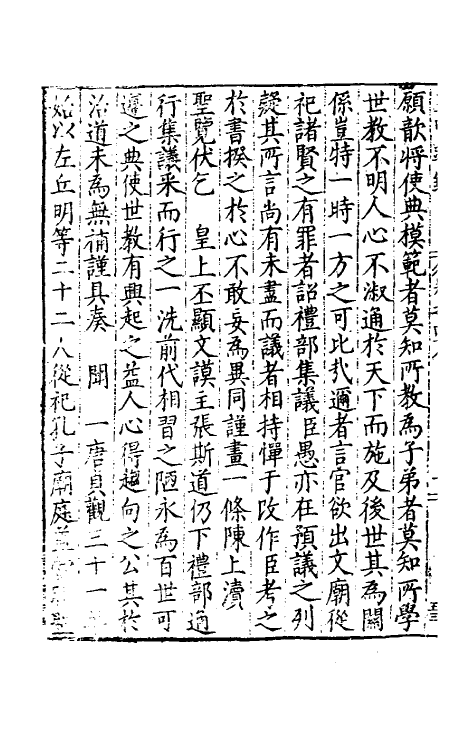 願歆將使典模範者莫知所教為子弟者莫知所學
世教不明人心不淑通於天下而施及後世其為關
係豈特一時一方之可比㢤邇者言官欲出文廟從
祀諸賢之有罪者詔禮部集議臣愚亦在預議之列
疑其所言尚有未盡而議者相持憚于改作臣考之
於書揆之於心不敢妄為異同謹畫一條陳上瀆
聖覽伏乞　皇上丕顯文謨主張斯道仍下禮部通
行集議采而行之一洗前代相習之陋永為百世可
遵之典使世教有興起之益人心得趨向之公其於
治道未為無補謹具奏　聞　一唐貞觀二十一
始以左丘明等二十二人從祀孔子廟庭